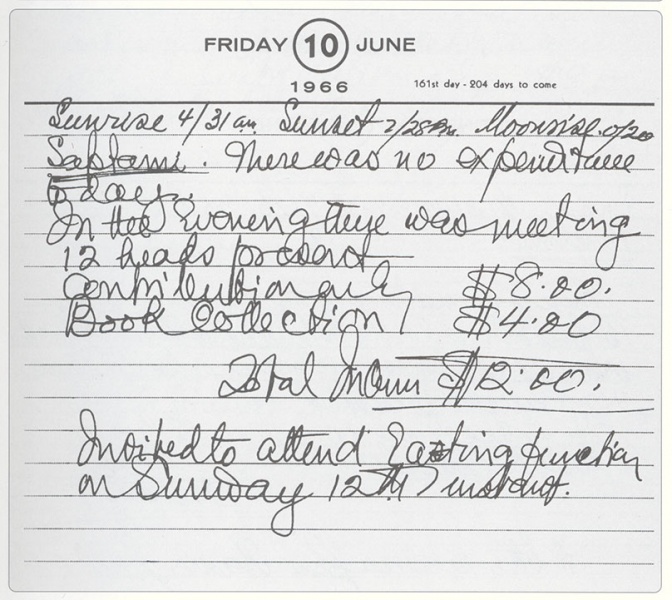 FRIDAY 10 JUNE
1966
161st day - 204 days to come
Sunrise 4/31 am. Sunset 7/28 Pm. Moonrise. 0/20
Saptami. There was no expenditure
to day.
In the Evening there was meeting
12 heads present
Contribution only $8.00.
Book Collection $4.00
Total Income $12.00.
Invited to attend Eating function
on Sunday 12th instant.